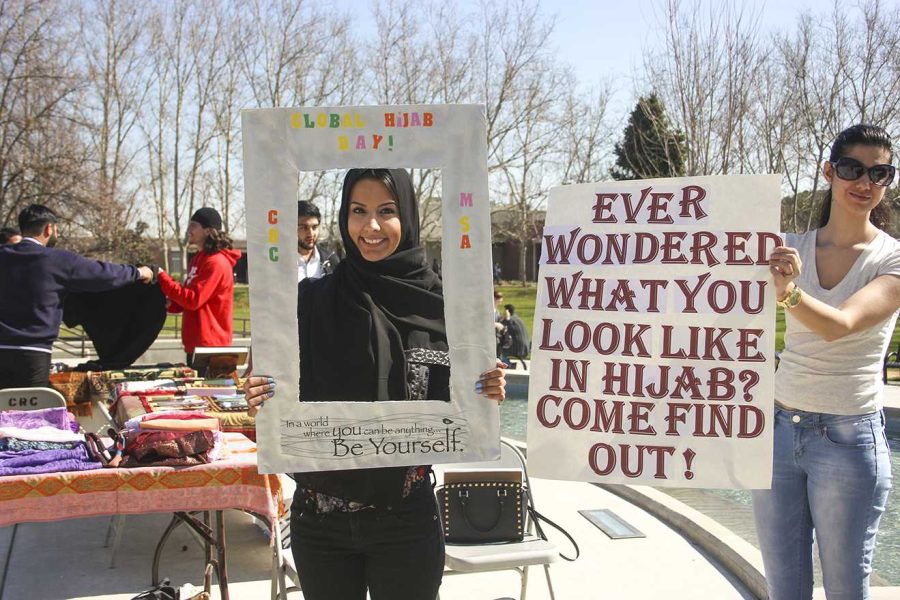 GLOBAL HIJAB
DAY!
CRC
MSA
In a world
where you can be anything...
Be Yourself.
EVER
WONDERED
WHAT YOU
LOOK LIKE
IN HIJAB?
COME FIND
OUT!
CRC